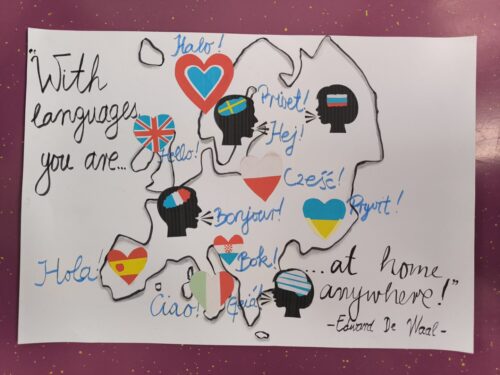 "With
languages
you are...
Halo!
Privet!
Hej!
Hello!
Cześć!
Bonjour!
Pryvit!
Hola!
Bok!
Ciao!
...at home
anywhere!"
-Edward De Waal-